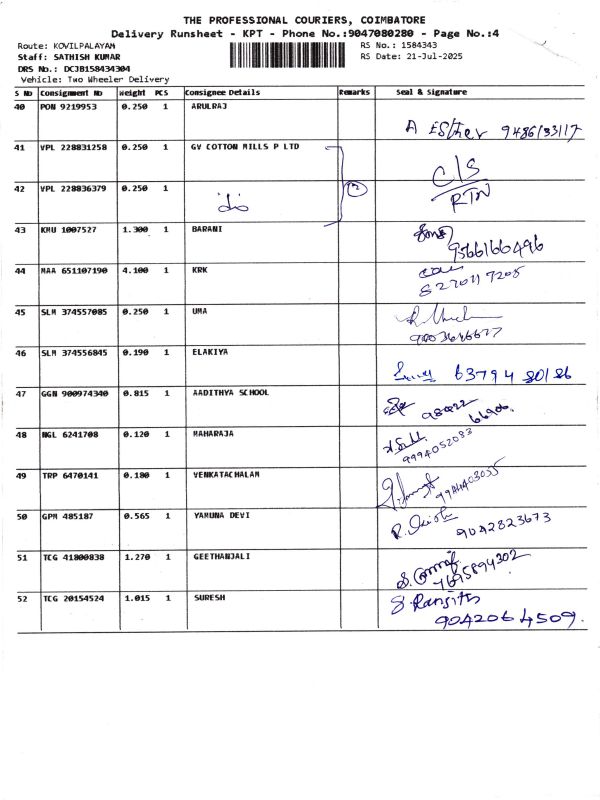 THE PROFESSIONAL COURIERS, COIMBATORE
Delivery Runsheet - KPT - Phone No.:9047080280 - Page No.:4
Route: KOVILPALAYAM RS No.: 1584343
Staff: SATHISH KUMAR RS Date: 21-Jul-2025
DRS No.: DCJB158434304
Vehicle: Two Wheeler Delivery
S No Consignment No Weight PCS Consignee Details Remarks Seal & Signature
40 PON 9219953 0.250 1 ARULRAJ
A Esther 9486133117
41 VPL 228831258 0.250 1 GV COTTON MILLS P LTD
C/S
42 VPL 228836379 0.250 1
RTN
43 KMU 1007527 1.300 1 BARANI
9566160496
44 MAA 651107190 4.100 1 KRK
8270117205
45 SLM 374557085 0.250 1 UMA
46 SLM 374556845 0.190 1 ELAKIYA
63794 80126
47 GGN 900974340 0.815 1 AADITHYA SCHOOL
48 NGL 6241708 0.120 1 MAHARAJA
9994052033
49 TRP 6470141 0.180 1 VENKATACHALAM
50 GPM 485187 0.565 1 YAMUNA DEVI
9042823673
51 TCG 41800838 1.270 1 GEETHANJALI
7695894302
52 TCG 20154524 1.015 1 SURESH
S. Ranjith
9042064509.